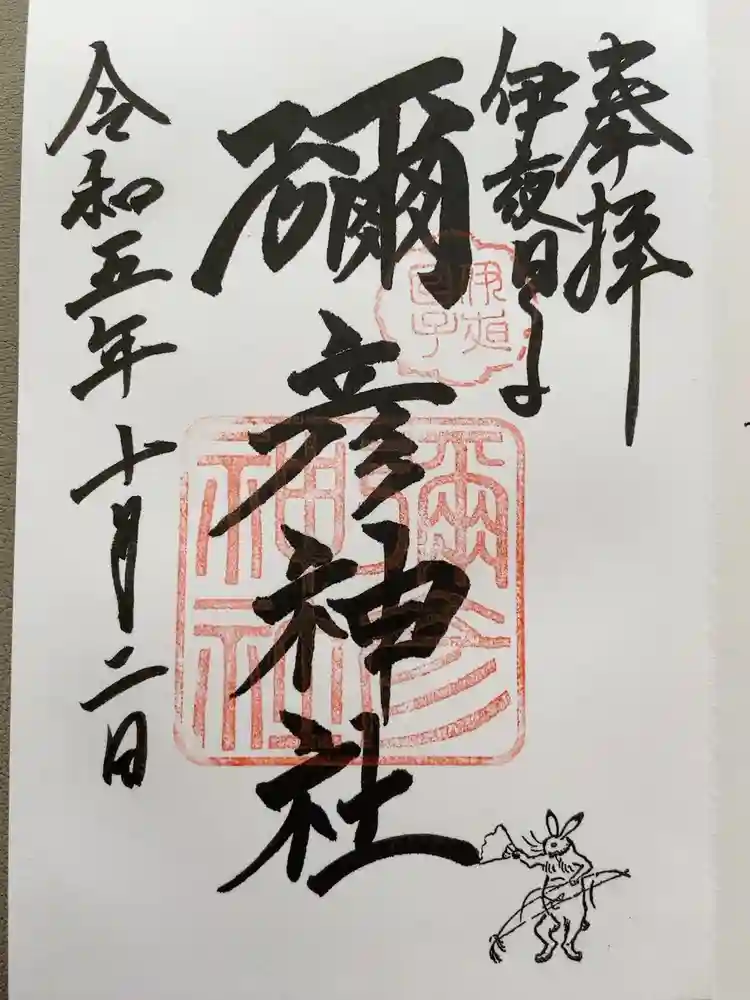 奉拝
伊夜日子
彌彦神社
令和五年十月二日
伊夜日子
彌彦神社